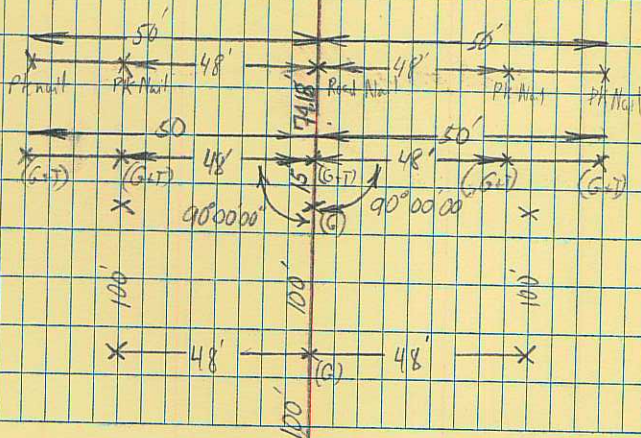 50' 50'
48' 48'
PK Nail PK Nail Road Nail PK Nail PK Nail
74.18'
50 50'
48' 48'
(G+T) (G+T) 15' (G+T) (G+T) (G+T)
90°00'00" (G) 90°00'00"
100' 100' 100'
48' 48'
(G)
100'